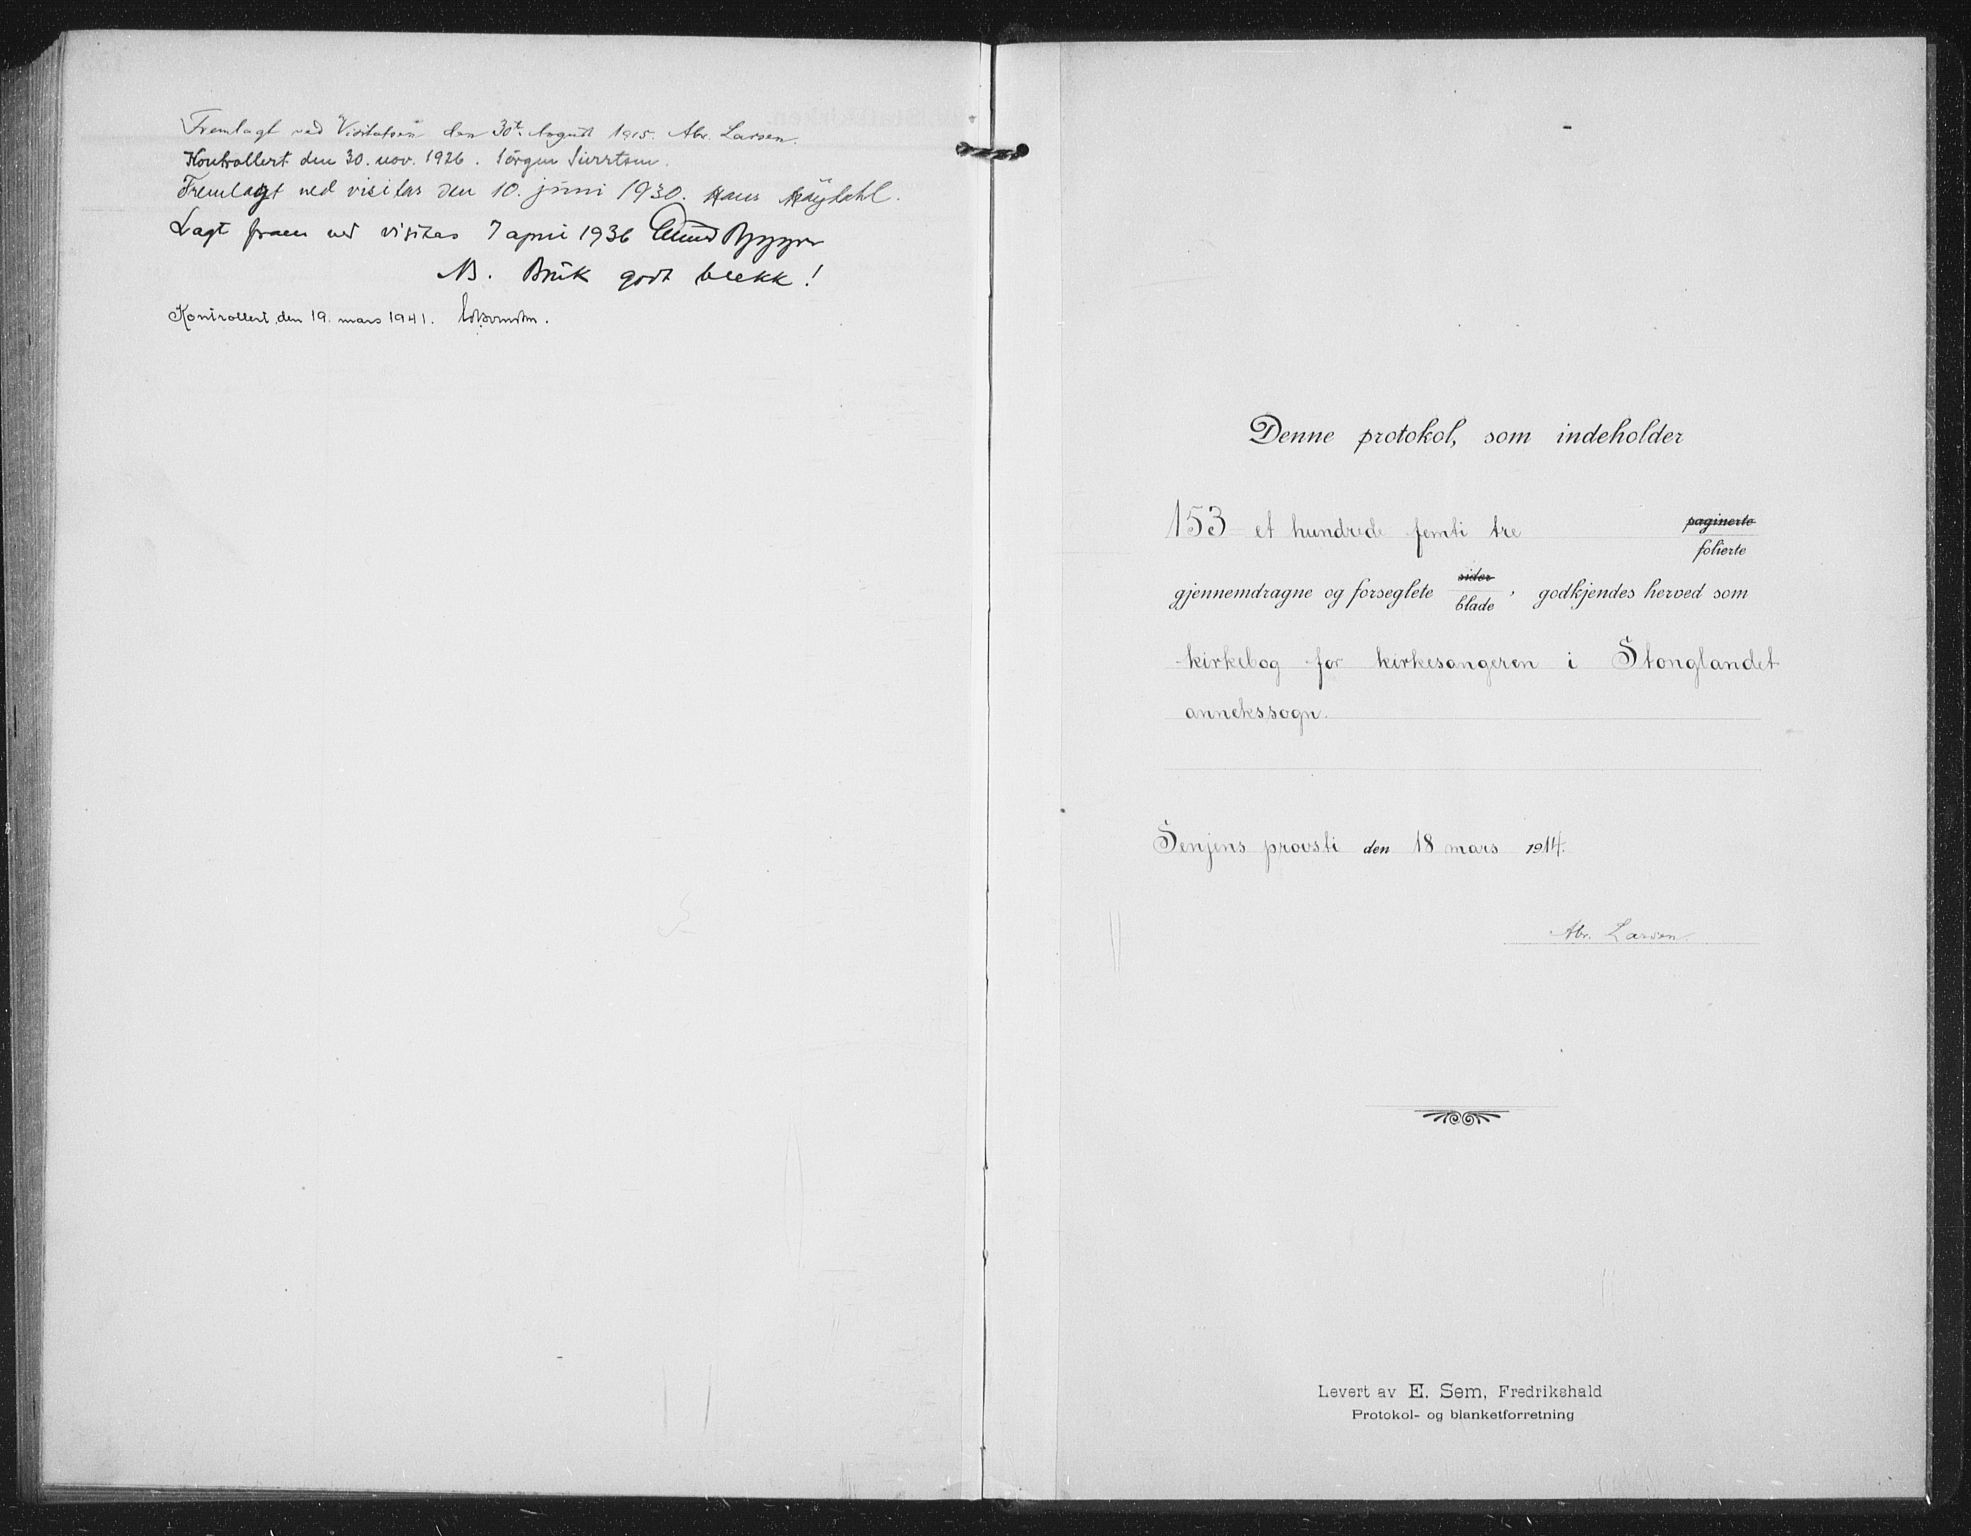 Fremlagt ved Visitatsen den 30te August 1915. Abr. Larsen.
Kontrollert den 30. nov. 1926. Jørgen
Fremlagt ved visitas den 10. juni 1930. Hans Høydahl.
Lagt fram ved visitas 7 april 1936
NB. Bruk godt blekk!
Kontrollert den 19. mars 1941.
Denne protokol, som indeholder
153 et hundrede femti tre paginerte
folierte
gjennemdragne og forseglete sider blade, godkjendes herved som
kirkebog for kirkesangeren i Stonglandet
annekssogn.
Senjens provsti den 18 mars 1914.
Abr. Larsen
Levert av E. Sem, Fredrikshald
Protokol- og blanketforretning